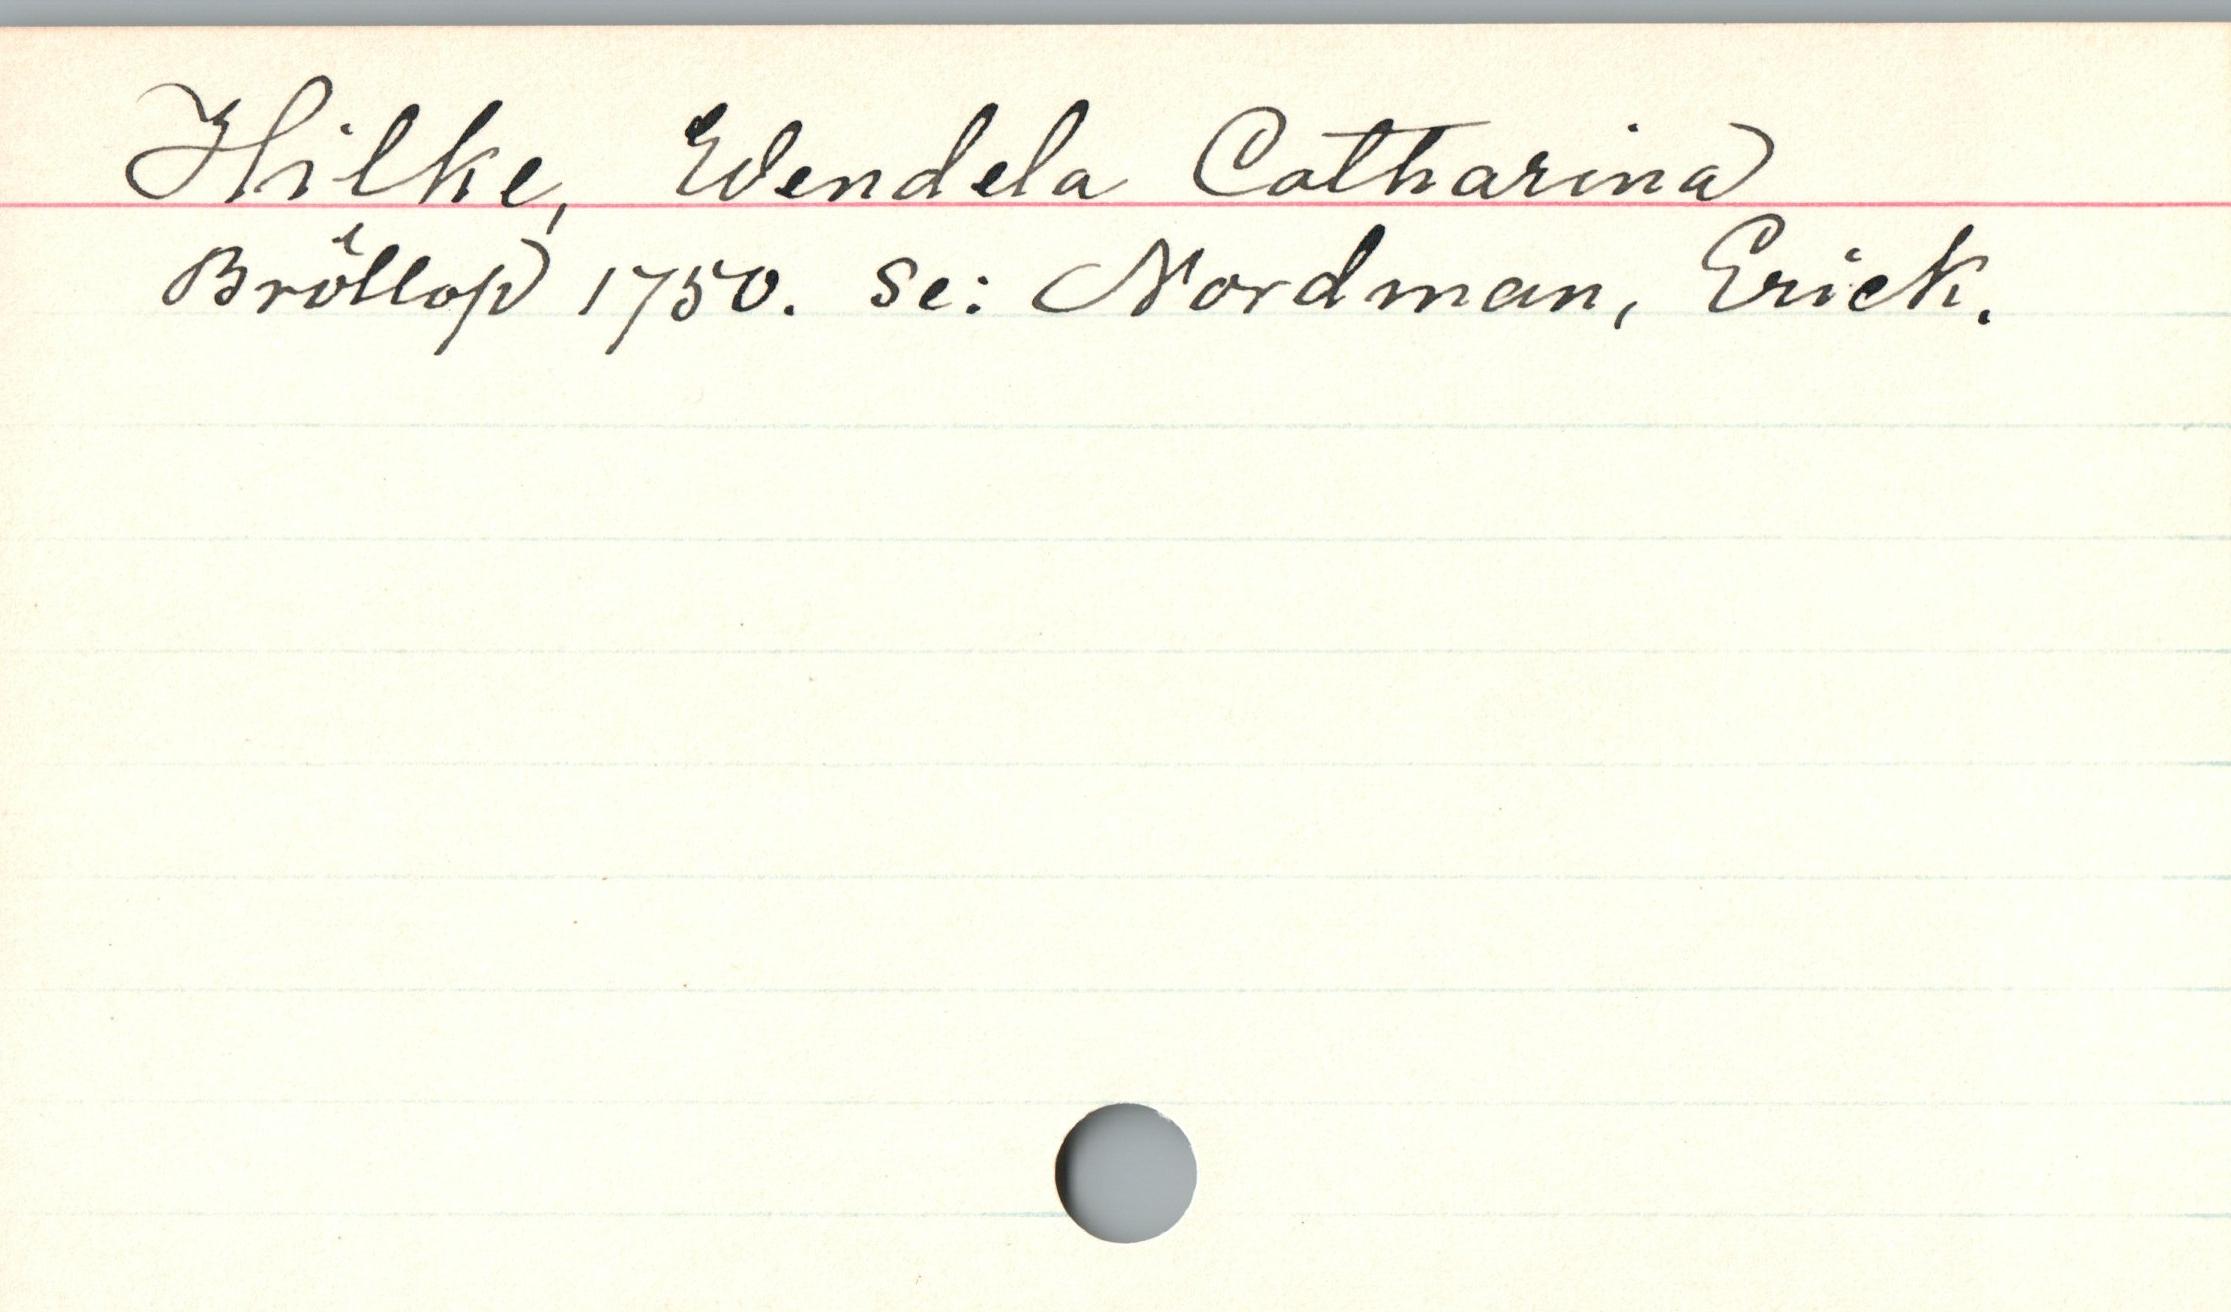 Hilke, Wendela Catharina
Bröllop 1750. se: Nordman, Erick.